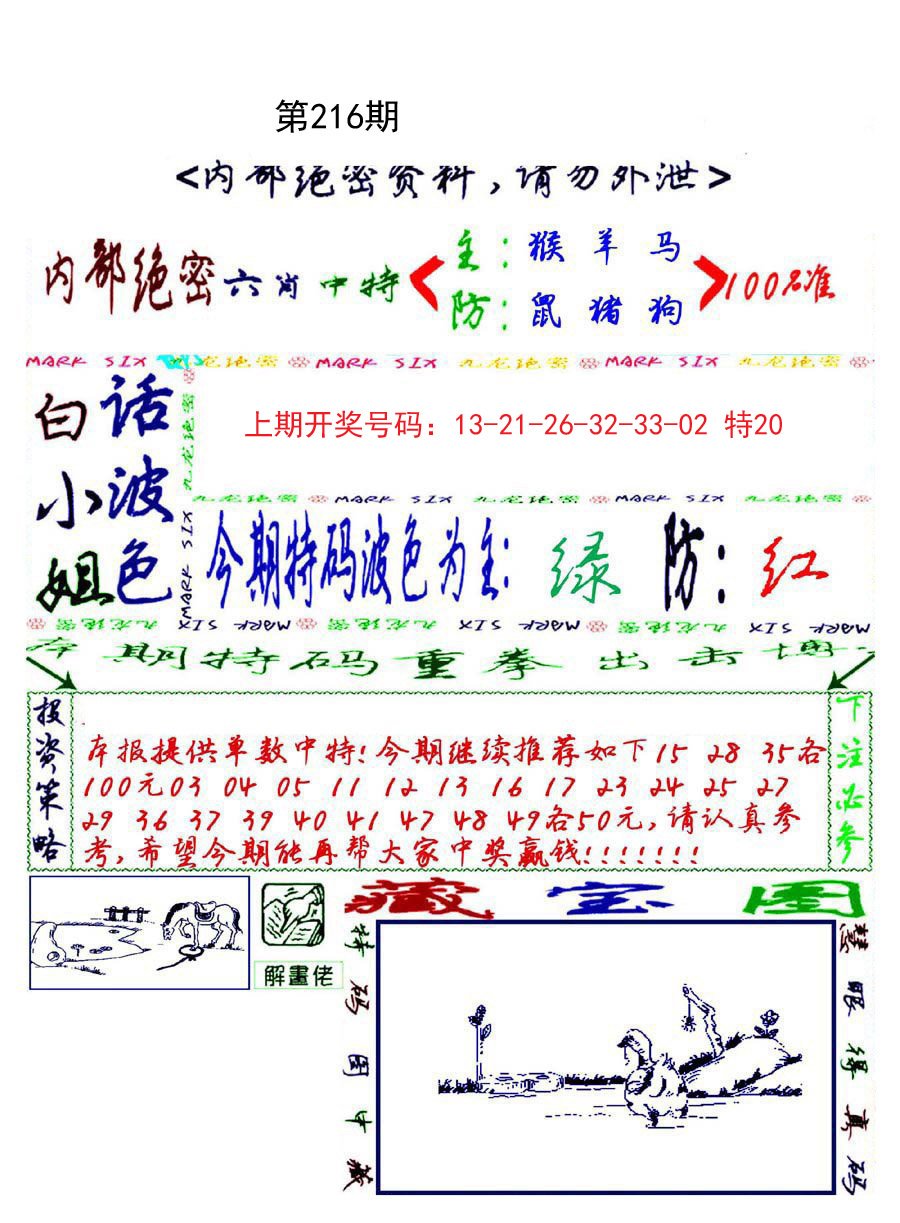 第216期
<内部绝密资料,请勿外泄>
内部绝密六肖中特
主:猴羊马
防:鼠猪狗
100%准
MARK SIX 九龙绝密 MARK SIX 九龙绝密 MARK SIX 九龙绝密
白话
小波
姐色
九龙绝密
MARK SIX
上期开奖号码：13-21-26-32-33-02 特20
九龙绝密 MARK SIX 九龙绝密 MARK SIX 九龙绝密
今期特码波色为主:绿 防:红
九龙绝密 MARK SIX 九龙绝密 MARK SIX 九龙绝密 MARK SIX
本期特码重拳出击博
投资策略
本报提供单数中特!今期继续推荐如下15 28 35各
100元03 04 05 11 12 13 16 17 23 24 25 27
29 36 37 39 40 41 47 48 49各50元,请认真参
考,希望今期能再帮大家中奖赢钱!!!!!!!
下注必参
解畫佬
藏宝图
特码图中藏
慧眼得真码